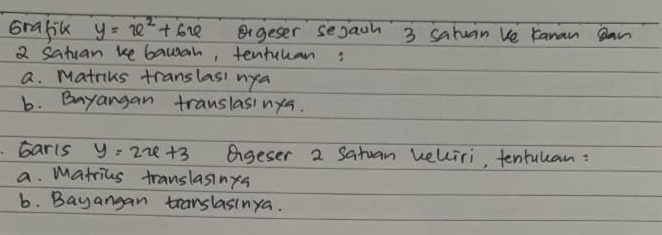 Grafik y = x² + 6x digeser sejauh 3 satuan ke kanan dan
2 satuan ke bawah, tentukan :
a. Matriks translasi nya
b. Bayangan translasi nya.
Garis y = 2x + 3 digeser 2 satuan ke kiri, tentukan :
a. Matriks translasinya
b. Bayangan translasinya.